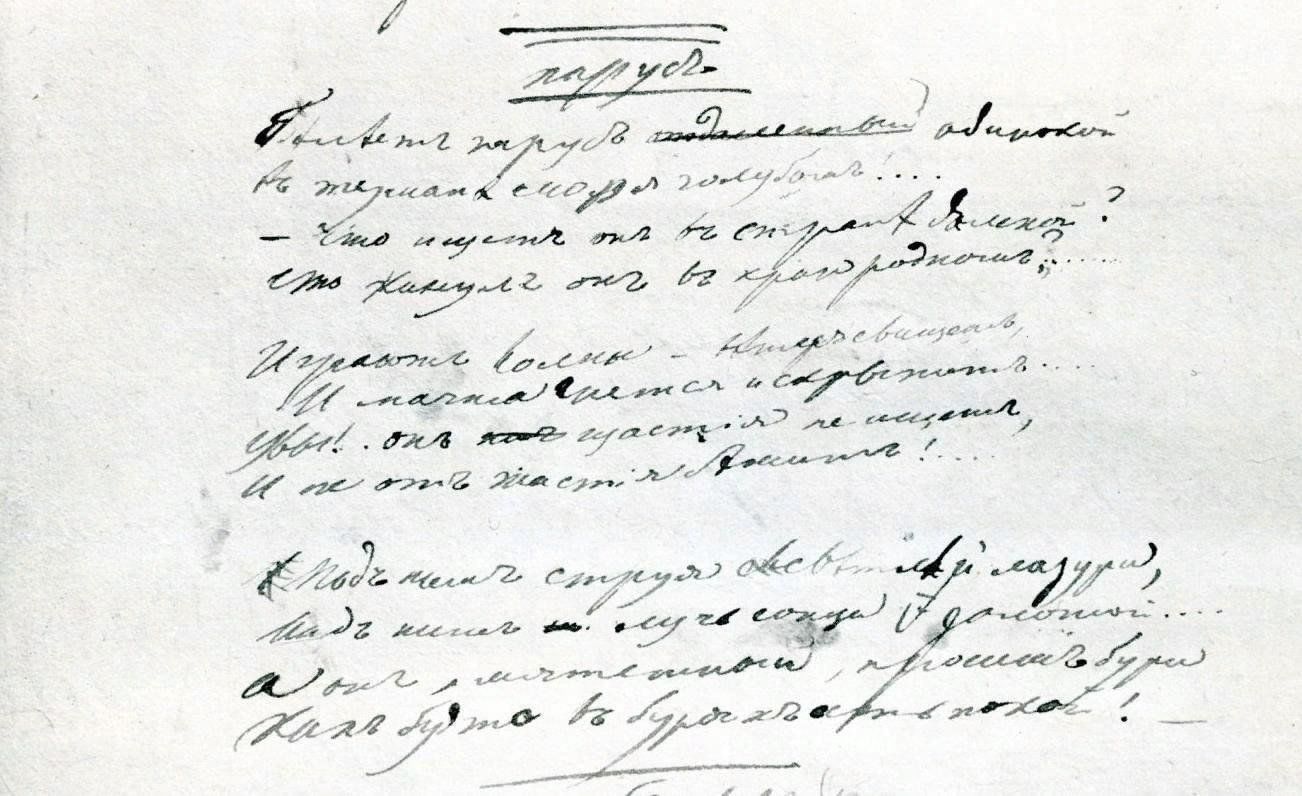 Парусъ
Бѣлѣетъ парусъ отдаленный одинокой
Въ туманѣ моря голубомъ!....
— Что ищетъ онъ въ странѣ далекой?
Что кинулъ онъ въ краю родномъ?.....
Играютъ волны — вѣтеръ свищетъ,
И мачта гнется и скрыпитъ....
Увы!.. онъ щастія не ищетъ,
И не отъ щастія бѣжитъ!....
Подъ нимъ струя свѣтлѣй лазури,
Надъ нимъ лучъ солнца золотой....
А онъ, мятежный, проситъ бури
Какъ будто въ буряхъ есть покой! —